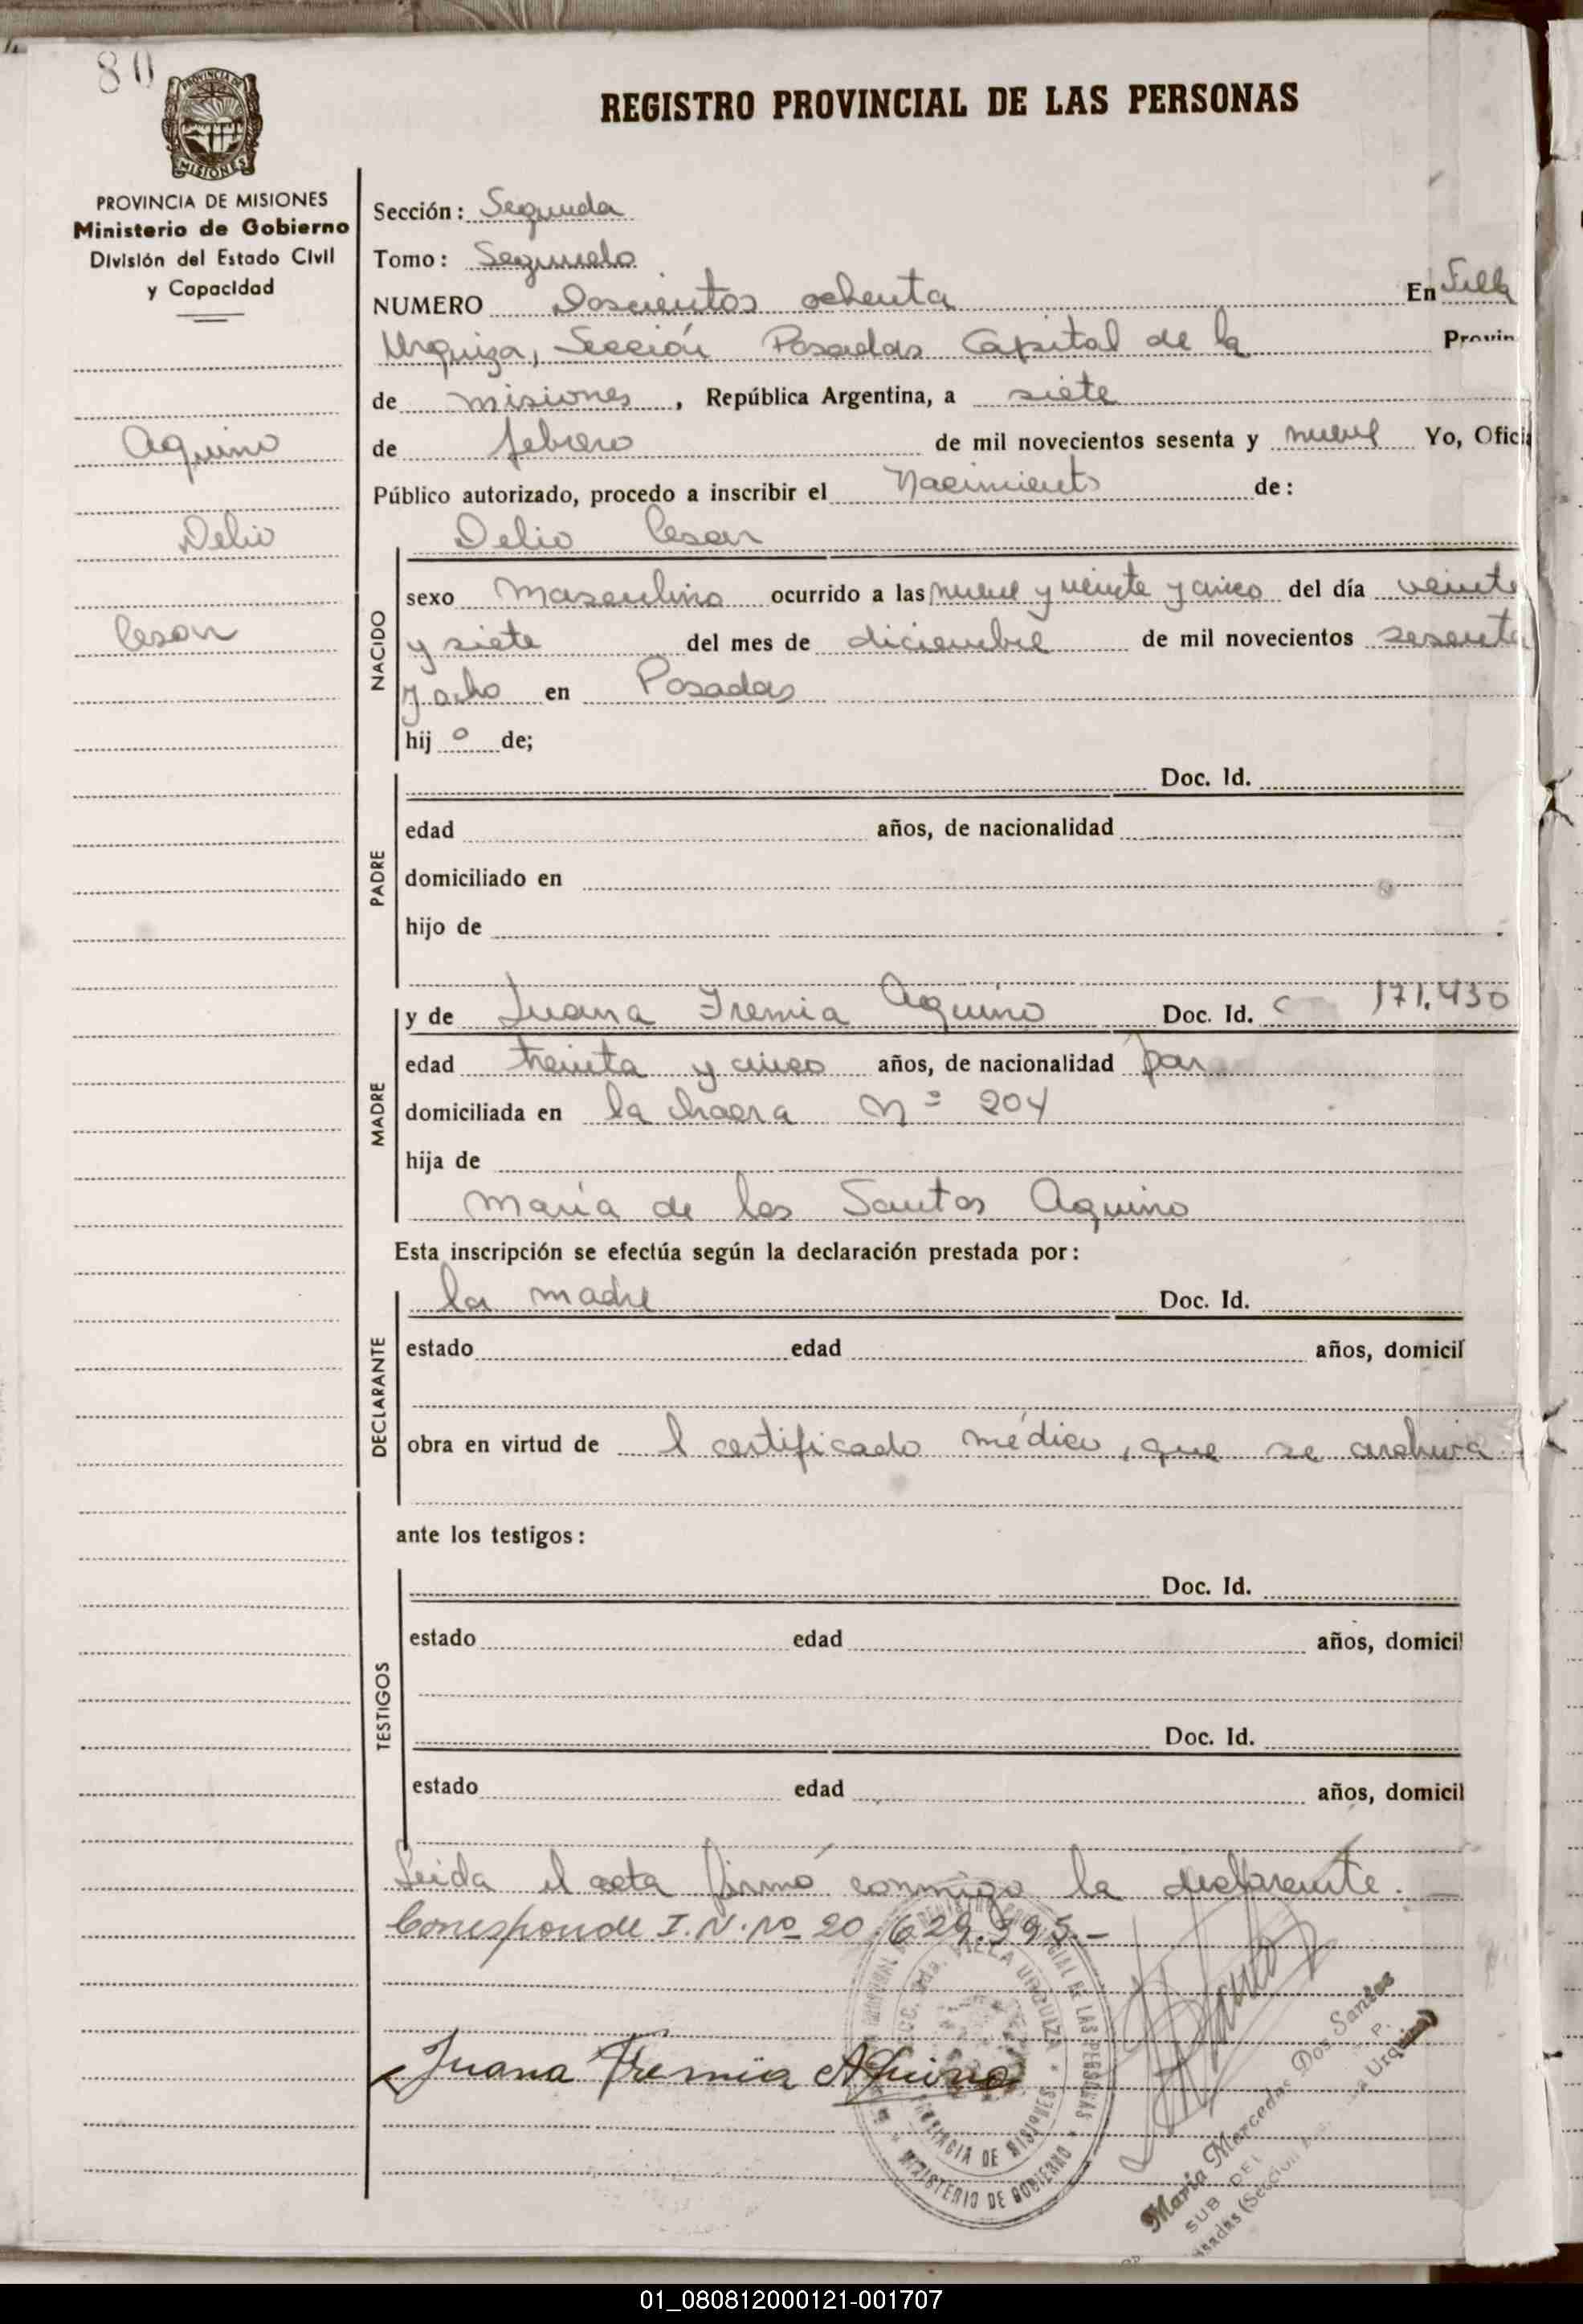 80
PROVINCIA DE
MISIONES
REGISTRO PROVINCIAL DE LAS PERSONAS
PROVINCIA DE MISIONES
Ministerio de Gobierno
División del Estado Civil
y Capacidad
Aquino
Delio
Cesar
Sección: Segunda
Tomo: Segundo
NUMERO Doscientos ochenta En Villa
Urquiza, Sección Posadas Capital de la Provin
de misiones, República Argentina, a siete
de febrero de mil novecientos sesenta y nueve Yo, Ofici
Público autorizado, procedo a inscribir el Nacimiento de:
Delio Cesar
NACIDO
sexo Masculino ocurrido a las nueve y veinte y cinco del día veinte
y siete del mes de diciembre de mil novecientos sesenta
y ocho en Posadas
hijo de;
PADRE
Doc. Id.
edad años, de nacionalidad
domiciliado en
hijo de
MADRE
y de Juana Iremia Aquino Doc. Id. C 171.430
edad treinta y cinco años, de nacionalidad par
domiciliada en la chacra Nº 204
hija de
María de los Santos Aquino
Esta inscripción se efectúa según la declaración prestada por:
DECLARANTE
la madre Doc. Id.
estado edad años, domicil
obra en virtud de l certificado médico, que se archiva
ante los testigos:
TESTIGOS
Doc. Id.
estado edad años, domicil
Doc. Id.
estado edad años, domicil
Leida el acta firmó conmigo la declarante.
Corresponde I.N. Nº 20.629.395.-
Juana Iremia Aquino
VILLA URQUIZA
PROVINCIA DE MISIONES
MINISTERIO DE GOBIERNO
DE LAS PERSONAS
María Mercedes Dos Santos
SUB DEL
01_080812000121-001707